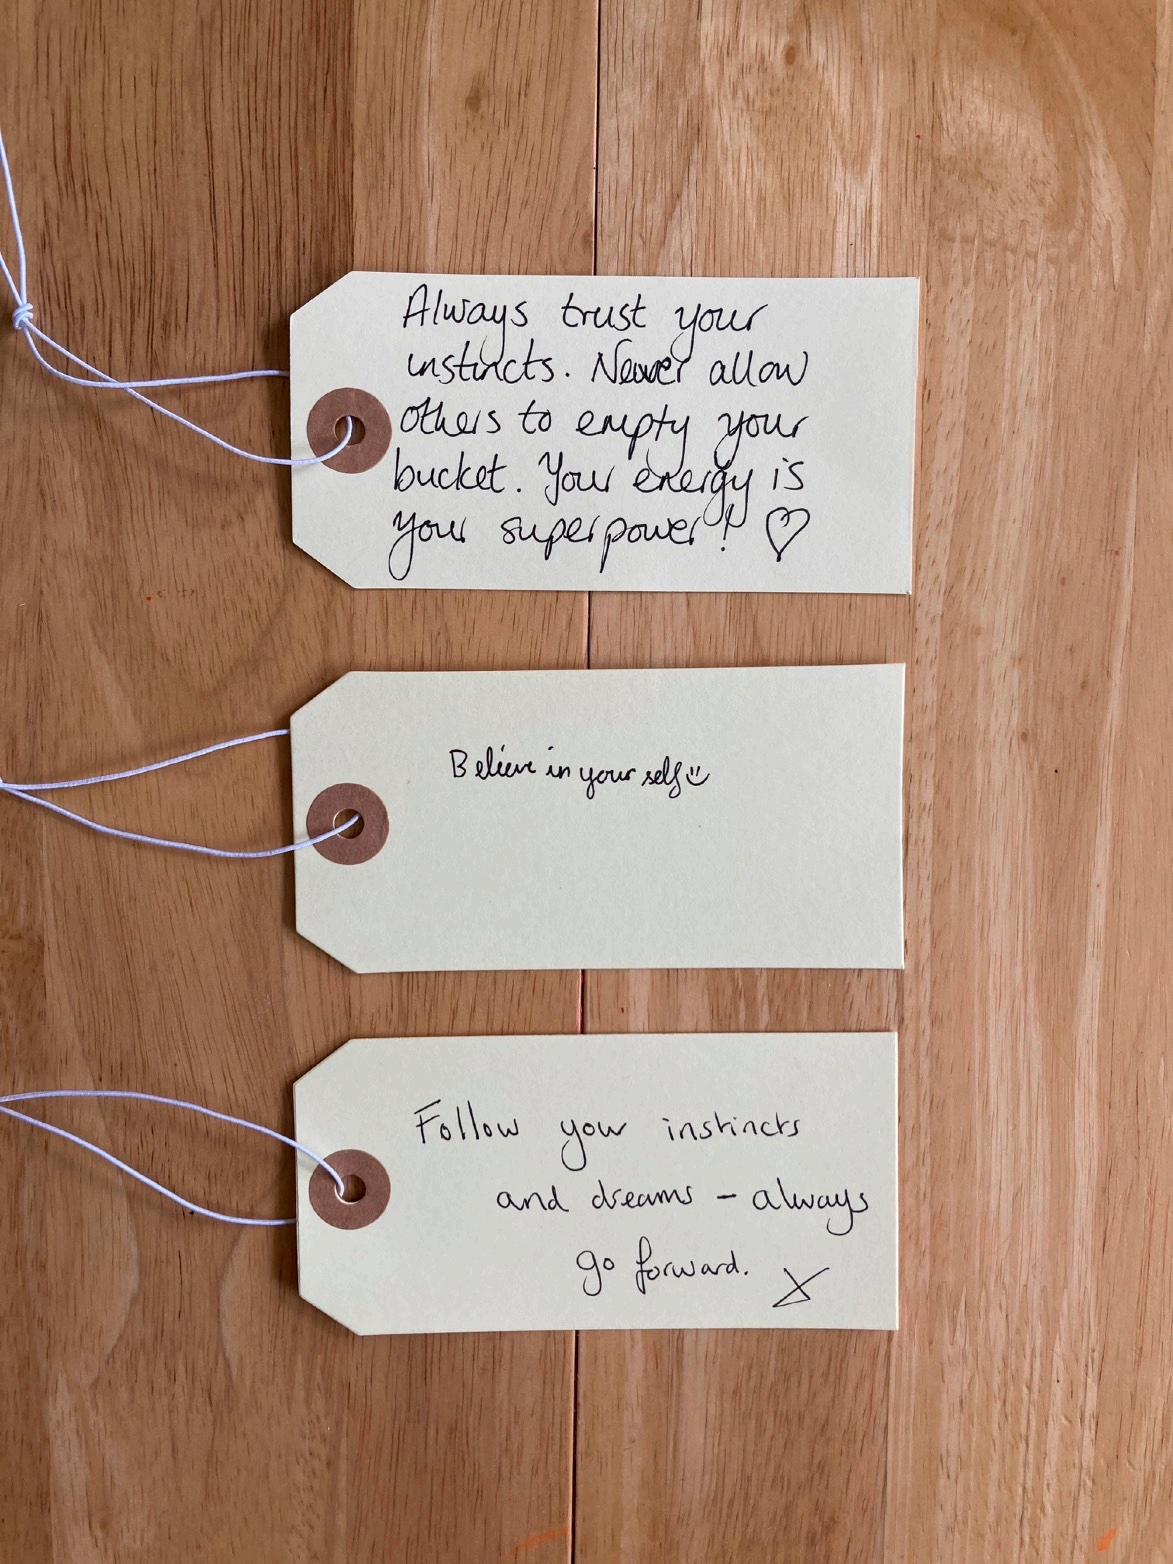 Always trust your
instincts. Never allow
others to empty your
bucket. Your energy is
your superpower! ♡
Believe in your self☺
Follow your instincts
and dreams – always
go forward. X